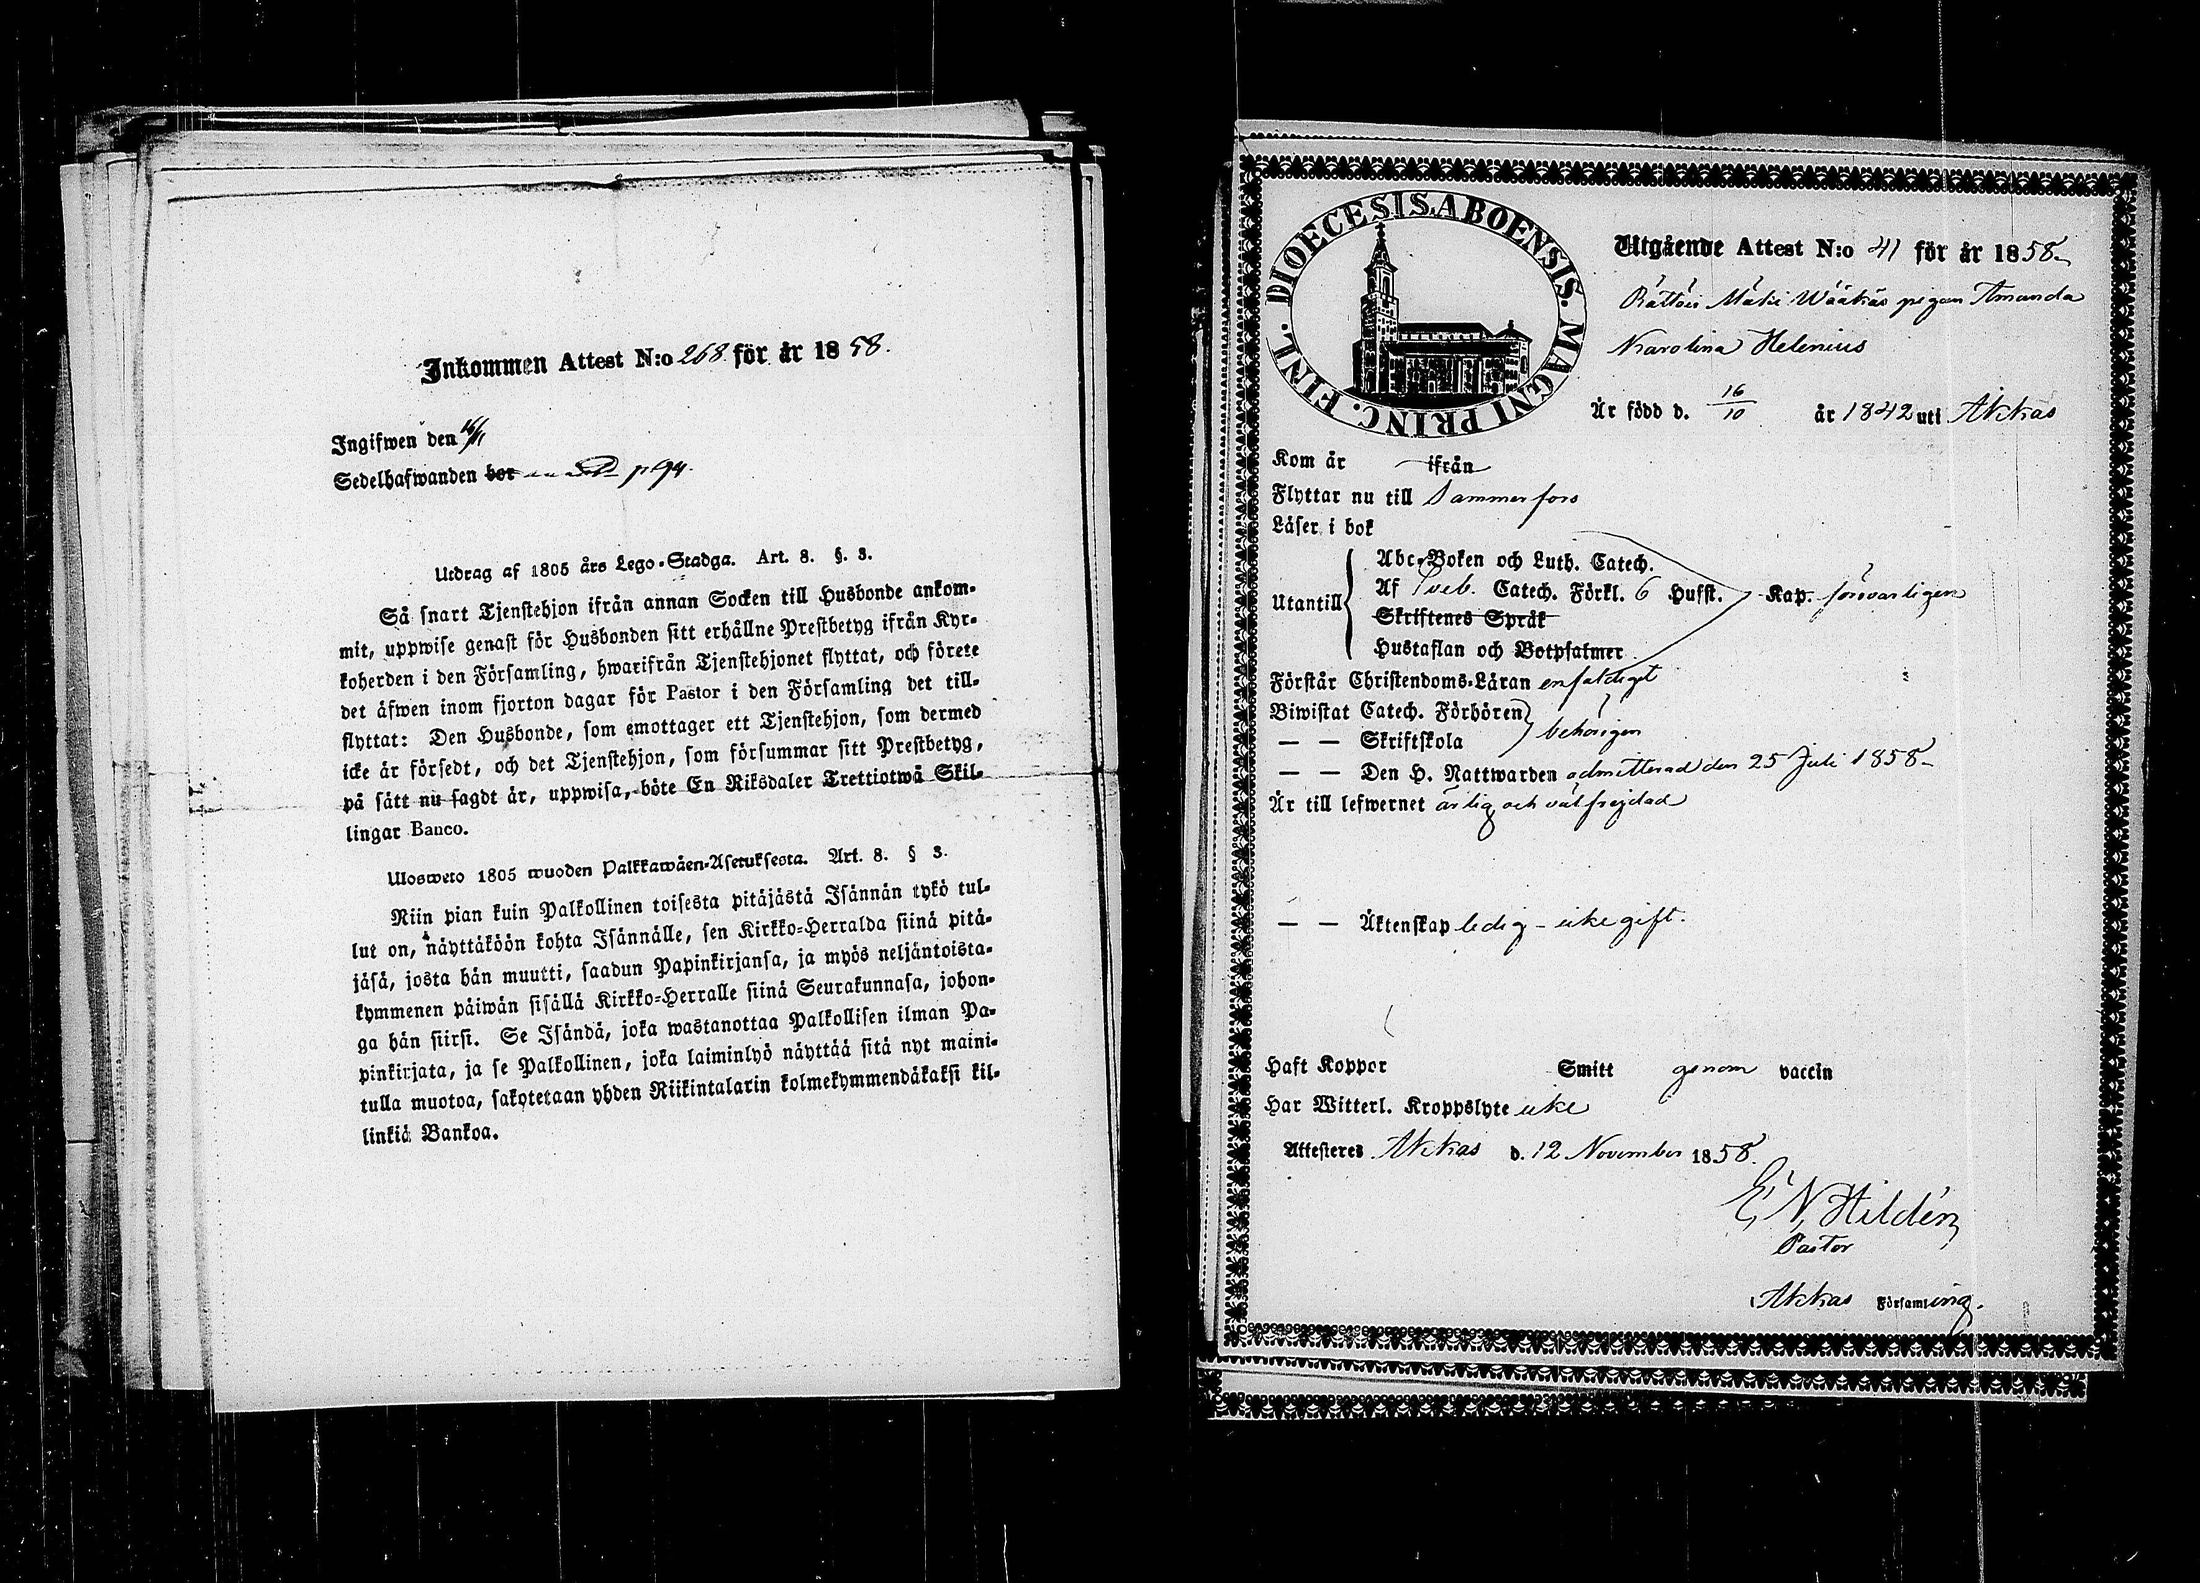 Inkommen Attest N:o 268. för år 1858.
Ingifwen den 16/11
Sedelhafwanden bor p 94.
Utdrag af 1805 års Lego-Stadga. Art. 8. §. 3.
Så snart Tjenstehjon ifrån annan Socken till Husbonde ankom-
mit, uppwise genast för Husbonden sitt erhållne Prestbetyg ifrån Kyr-
koherden i den Församling, hwarifrån Tjenstehjonet flyttat, och förete
det äfwen inom fjorton dagar för Pastor i den Församling det till-
flyttat: Den Husbonde, som emottager ett Tjenstehjon, som dermed
icke är försedt, och det Tjenstehjon, som försummar sitt Prestbetyg,
på sätt nu sagdt är, uppwisa, böte En Riksdaler Trettiotwå Skil-
lingar Banco.
Ulosweto 1805 wuoden Palkkawäen-Asetuksesta. Art. 8. § 3.
Niin pian kuin Palkollinen toisesta pitäjästä Isännän tykö tul-
lut on, näyttäköön kohta Isännälle, sen Kirkko-Herralda siinä pitä-
jäsä, josta hän muutti, saadun Papinkirjansa, ja myös neljäntoista-
kymmenen päiwän sisällä Kirkko-Herralle siinä Seurakunnasa, johon-
ga hän siirsi. Se Isändä, joka wastanottaa Palkollisen ilman Pa-
pinkirjata, ja se Palkollinen, joka laiminlyö näyttää sitä nyt maini-
tulla muotoa, sakotetaan yhden Riikintalarin kolmekymmendäkaksi kil-
linkiä Bankoa.
DIOECESIS. ABOENSIS. MAGNI PRINC. FINL.
Utgående Attest N:o 41 för år 1858
Mäki Wääkäs pigan Amanda
Karolina Helenius
Är född d. 16/10 år 1842 uti Akkas
Kom år ifrån
Flyttar nu till Tammerfors
Läser i bok
Utantill
Abc-Boken och Luth. Catech.
Af Sveb. Catech. Förkl. 6 Hufst. Kap. försvarligen
Skriftenes Språk
Hustaflan och Botpsalmer
Förstår Christendoms-Läran enfaldigt
Biwistat Catech. Förhören
— — Skriftskola behörigen
— — Den H. Nattwarden admitterad den 25 Juli 1858
Är till lefwernet ärlig och välfrejdad
— — Äktenskap ledig - icke gift.
Haft Koppor Smitt genom vaccin
Har Witterl. Kroppslyte icke
Attesteres Akkas d. 12 November 1858.
E. N. Hildén
Pastor
i Akkas Församling.